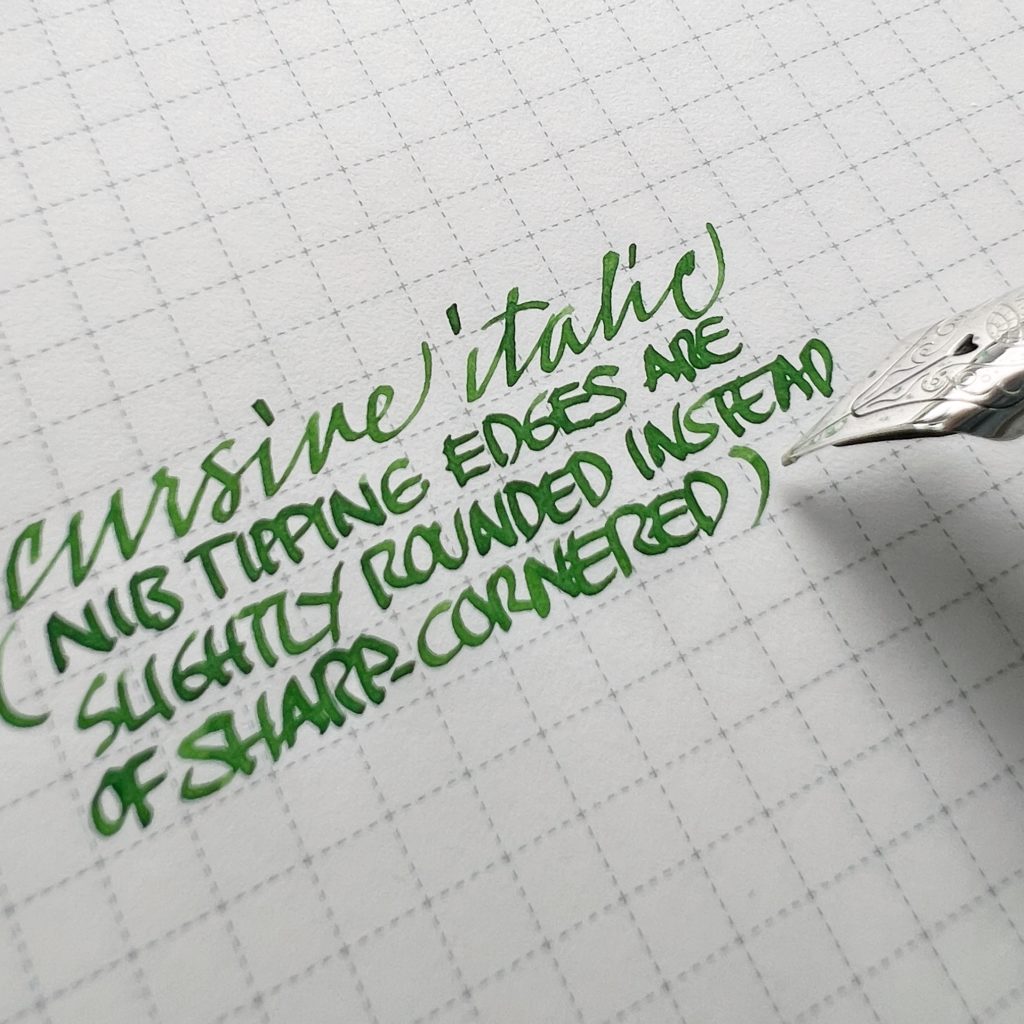 cursive italic
(NIB TIPPING EDGES ARE
SLIGHTLY ROUNDED INSTEAD
OF SHARP-CORNERED)